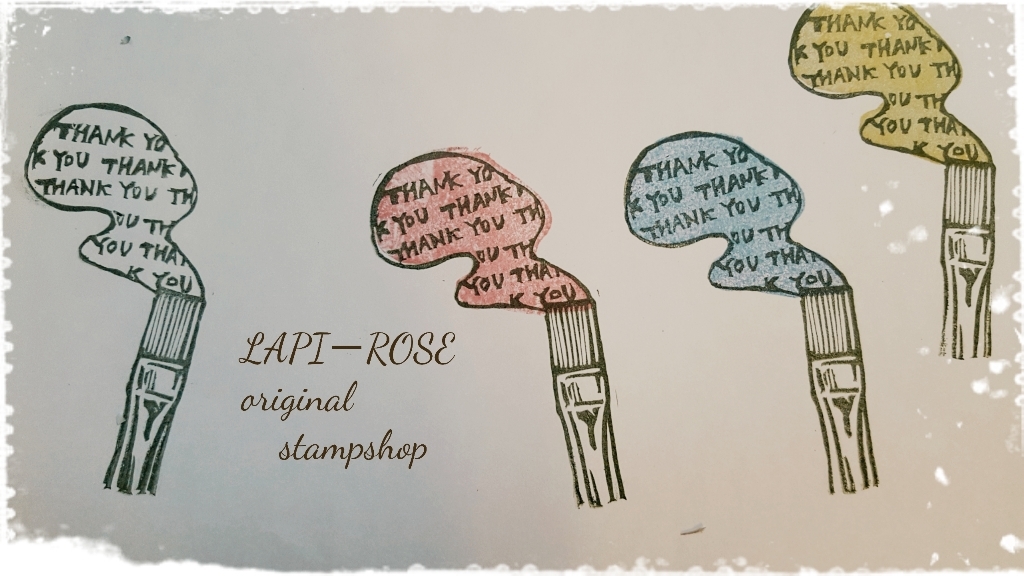 THANK YO
K YOU THANK
THANK YOU TH
OU TH
YOU THA
K YOU
THANK YO
K YOU THANK
THANK YOU TH
OU TH
YOU THA
K YOU
THANK YO
K YOU THANK
THANK YOU TH
OU TH
YOU THA
K YOU
THANK YO
K YOU THANK
THANK YOU TH
OU TH
YOU THA
K YOU
LAPI—ROSE
original
stampshop